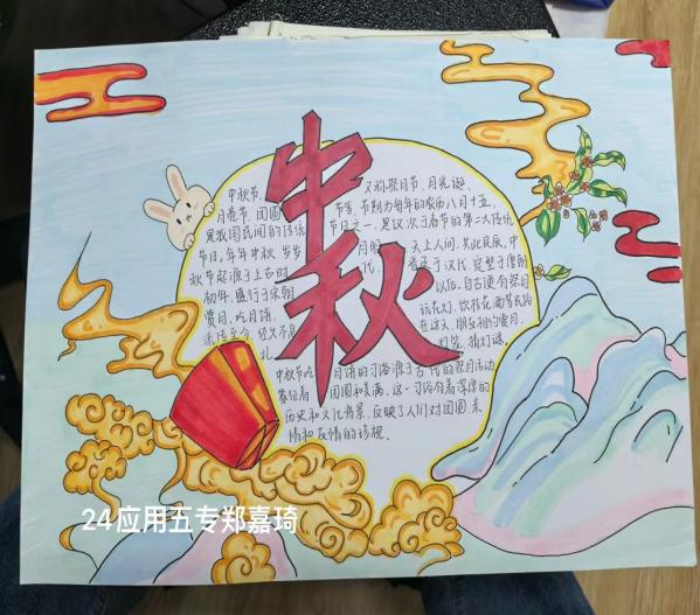 中秋
中秋节, 又称祭月节、月光诞、
月夜节、团圆节等, 节期为每年的农历八月十五,
是我国民间的传统节日之一, 是仅次于春节的第二大传统
节日。年年中秋 岁岁月明 天上人间, 共此良辰, 中
秋节起源于上古时代, 普及于汉代, 定型于唐朝
初年, 盛行于宋朝以后, 自古便有祭月
赏月、吃月饼、玩花灯、饮桂花酒等民俗
流传至今, 经久不息 在这天, 朋友相约赏月、
猜灯谜。
中秋节吃月饼的习俗源于古代的祭月活动
象征着团圆和美满, 这一习俗有着深厚的
历史和文化背景, 反映了人们对团圆、亲
情和友情的珍视。
24应用五专郑嘉琦